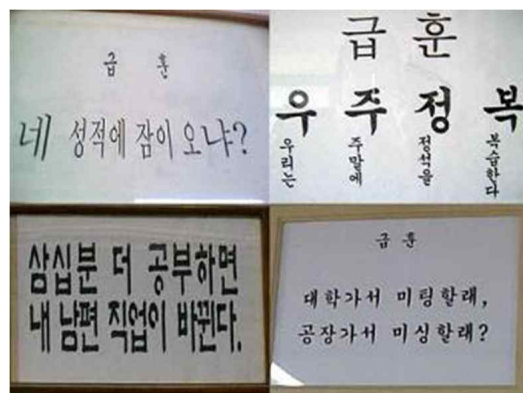 급 훈
네 성적에 잠이 오냐?
급 훈
우 주 정 복
우리는
주말에
정석을
복습한다
삼십분 더 공부하면
내 남편 직업이 바뀐다.
급 훈
대학가서 미팅할래,
공장가서 미싱할래?